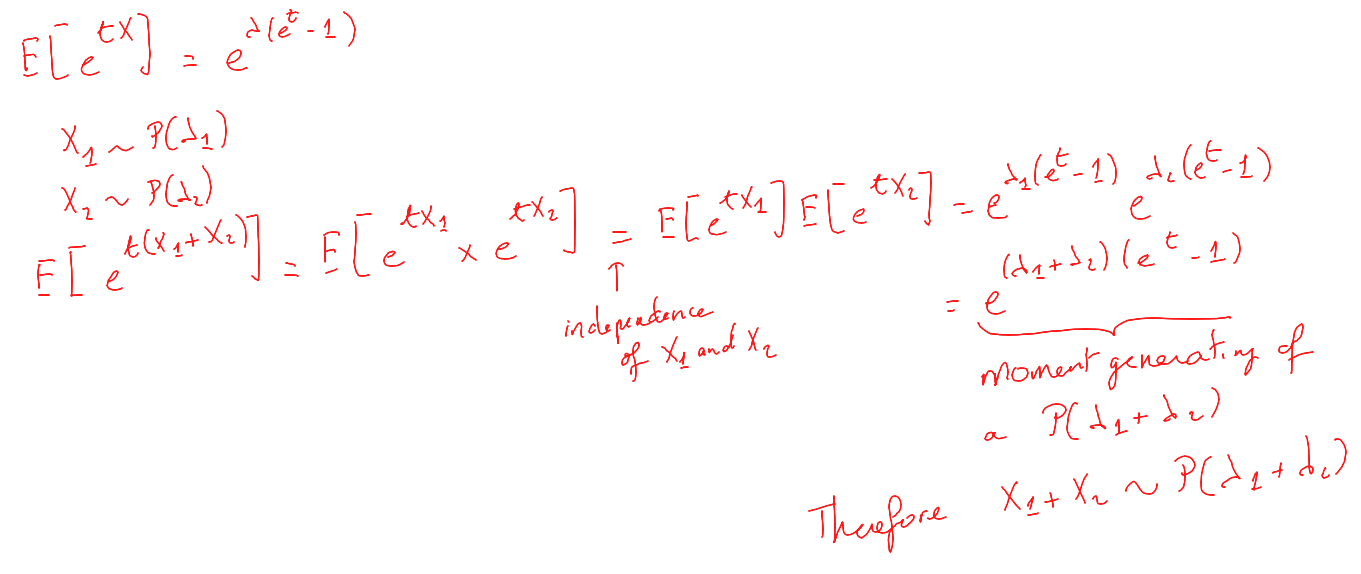 E[e^{tX}] = e^{λ(e^t - 1)}
X_1 ~ P(λ_1)
X_2 ~ P(λ_2)
E[e^{t(X_1 + X_2)}] = E[e^{tX_1} × e^{tX_2}] = E[e^{tX_1}] E[e^{tX_2}] = e^{λ_1(e^t - 1)} e^{λ_2(e^t - 1)}
↑
independence
of X_1 and X_2
= e^{(λ_1 + λ_2)(e^t - 1)}
moment generating of
a P(λ_1 + λ_2)
Therefore X_1 + X_2 ~ P(λ_1 + λ_2)